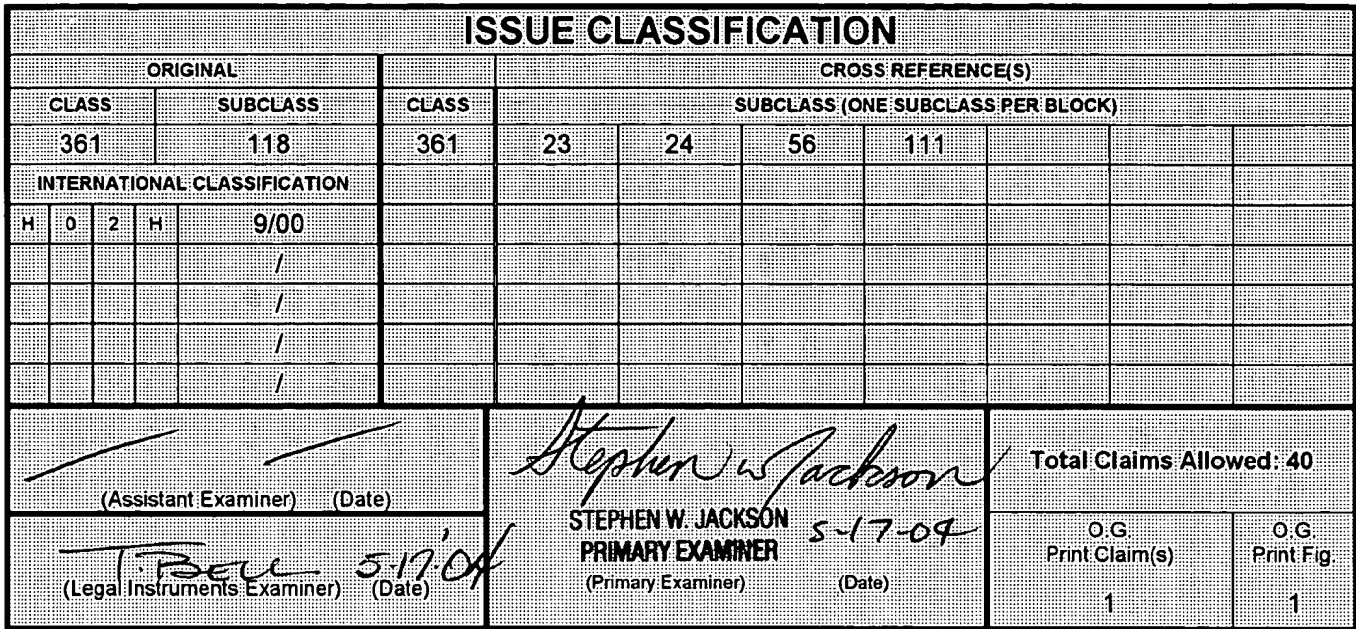 ISSUE CLASSIFICATION
ORIGINAL CROSS REFERENCE(S)
CLASS SUBCLASS CLASS SUBCLASS (ONE SUBCLASS PER BLOCK)
361 118 361 23 24 56 111
INTERNATIONAL CLASSIFICATION
H 0 2 H 9/00
/
/
/
/
(Assistant Examiner) (Date)
T. BELL 5-17-04
(Legal Instruments Examiner) (Date)
Stephen W Jackson
STEPHEN W. JACKSON 5-17-04
PRIMARY EXAMINER
(Primary Examiner) (Date)
Total Claims Allowed: 40
O.G. O.G.
Print Claim(s) Print Fig.
1 1